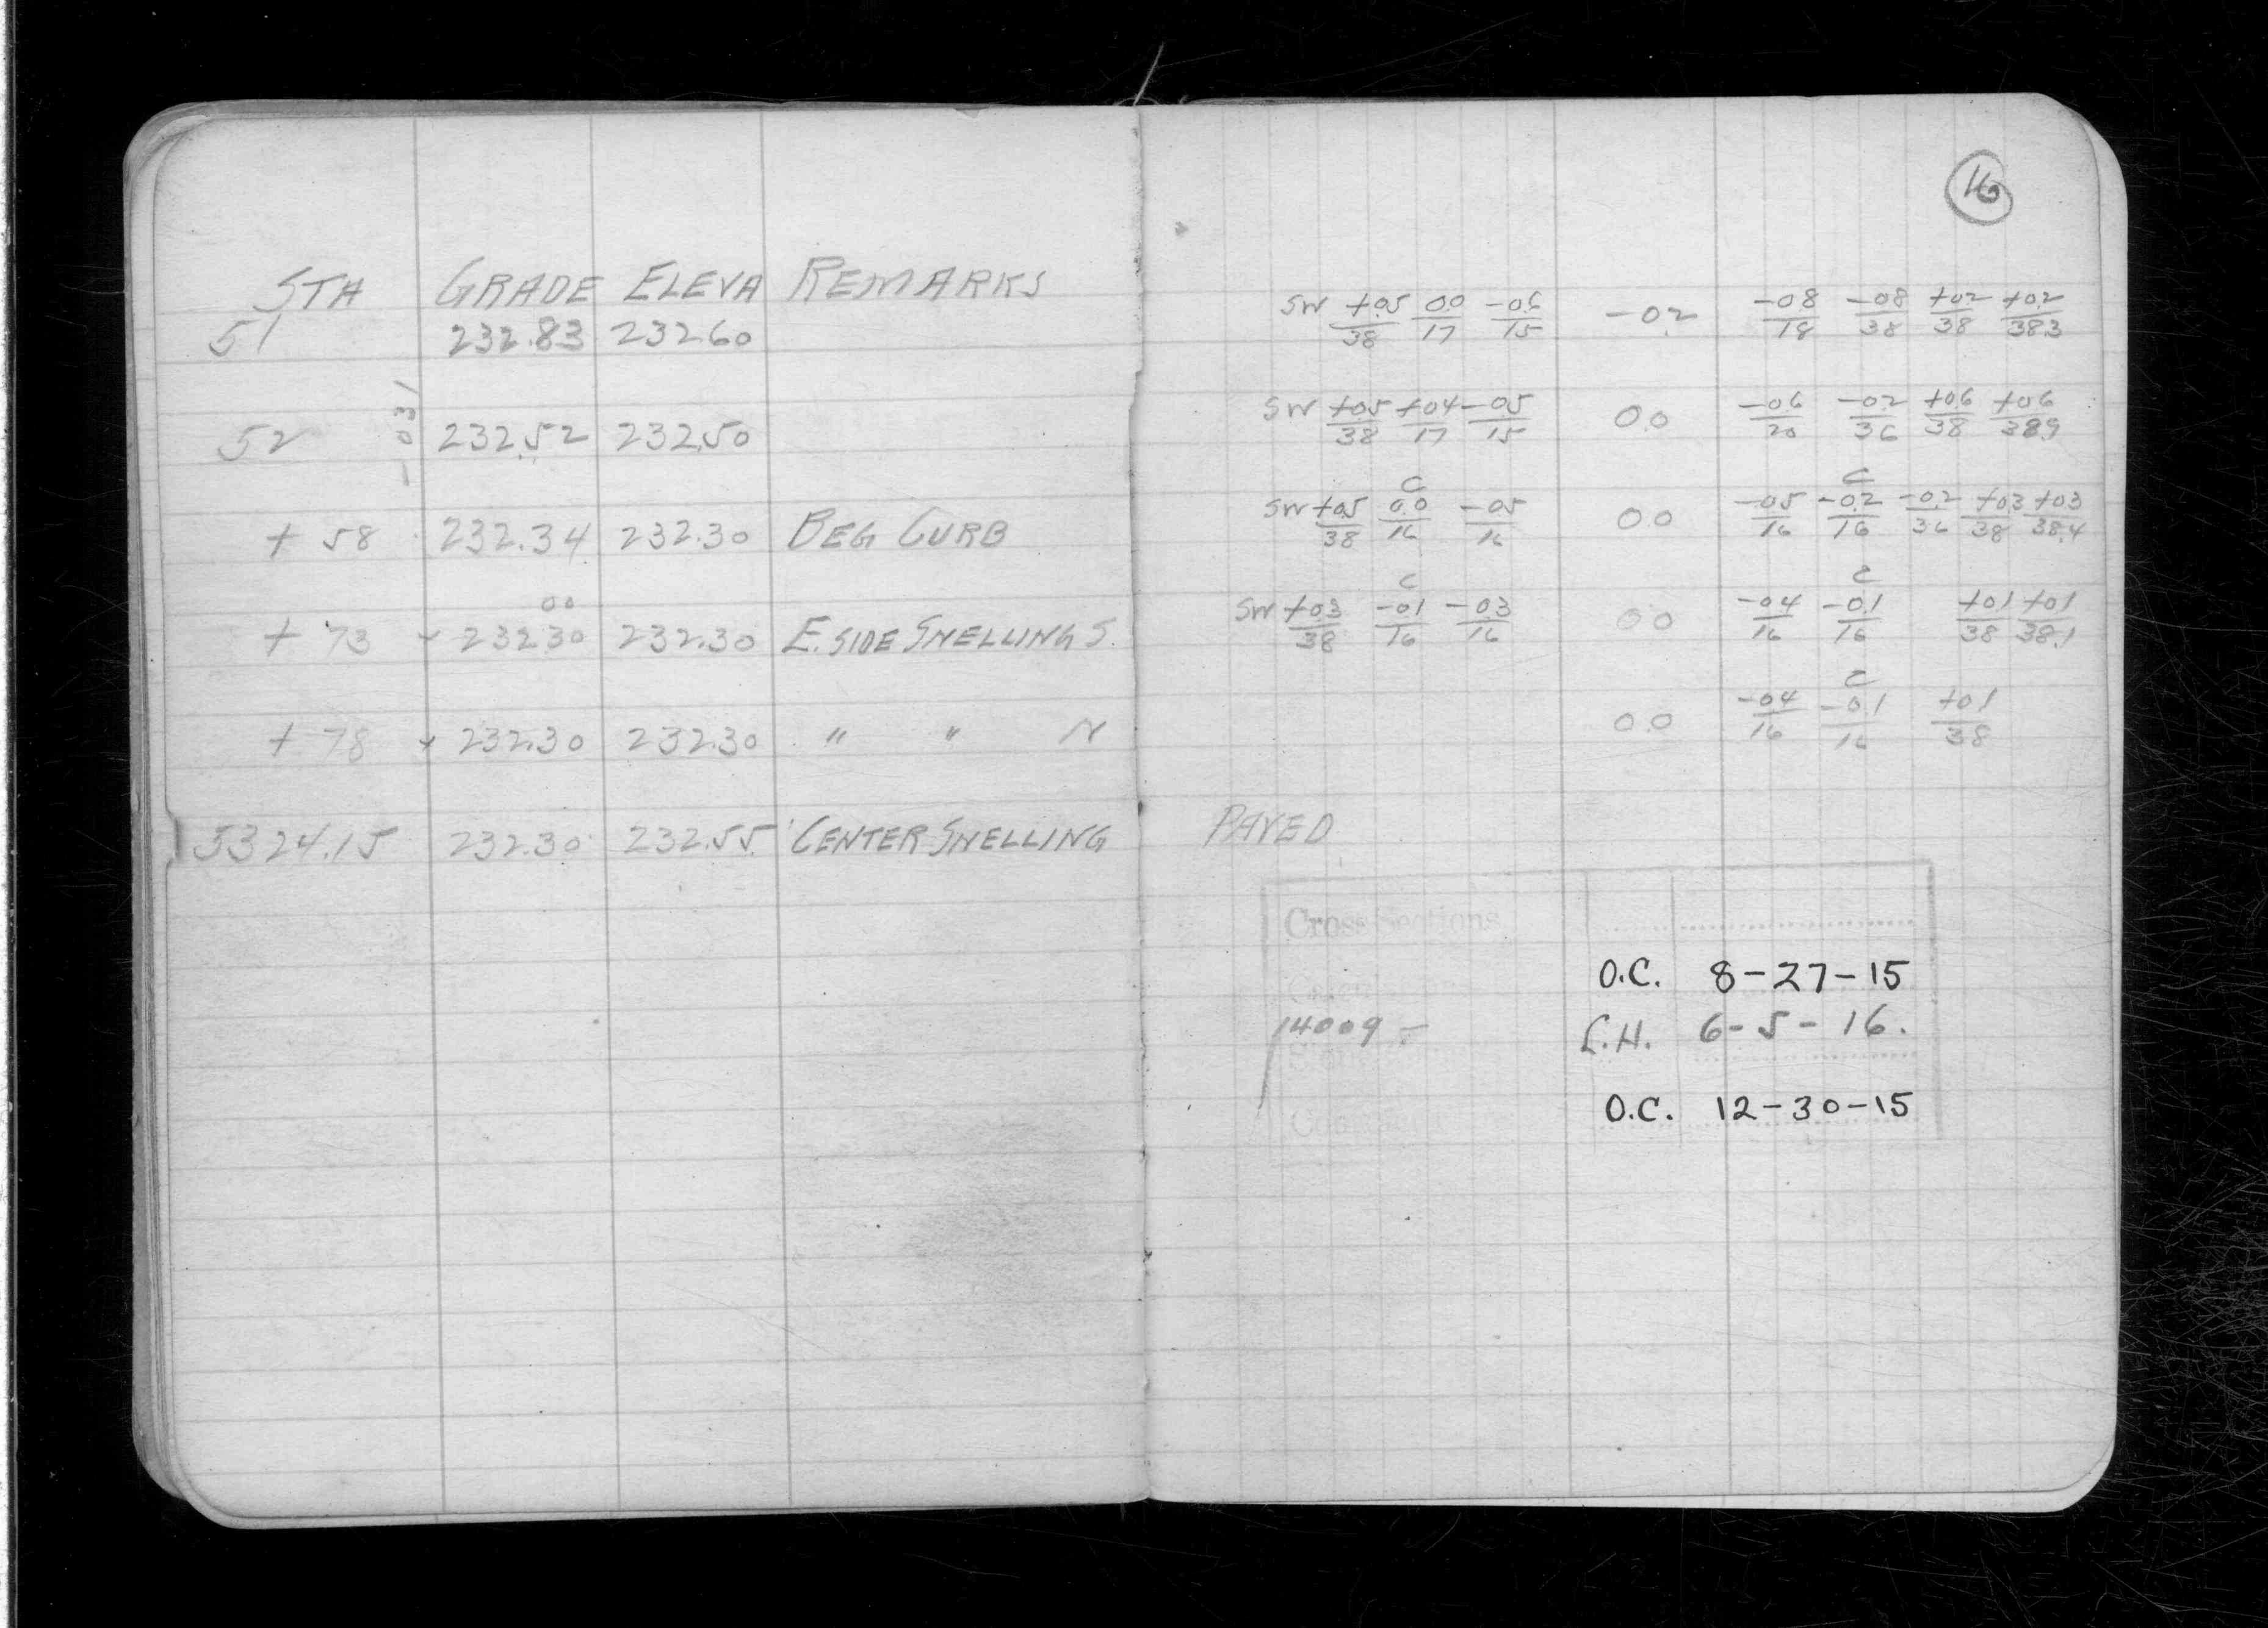 16
STA GRADE ELEVA REMARKS
51 232.83 232.60
-031
52 232.52 232.50
+ 58 232.34 232.30 BEG CURB
00
+ 73 232.30 232.30 E. SIDE SNELLING S.
+ 78 232.30 232.30 " " N
5324.15 232.30 232.55 CENTER SNELLING
SW +0.5/38 0.0/17 -0.6/15 -0.2 -0.8/18 -0.8/38 +0.2/38 +0.2/38.3
SW +0.5/38 +0.4/17 -0.5/15 0.0 -0.6/20 -0.2/36 +0.6/38 +0.6/38.9
C C
SW +0.5/38 0.0/16 -0.5/16 0.0 -0.5/16 -0.2/16 -0.2/36 +0.3/38 +0.3/38.4
C C
SW +0.3/38 -0.1/16 -0.3/16 0.0 -0.4/16 -0.1/16 +0.1/38 +0.1/38.1
C
0.0 -0.4/16 -0.1/16 +0.1/38
PAVED
Cross Sections
O.C. 8-27-15
14009 -
L.H. 6-5-16.
O.C. 12-30-15